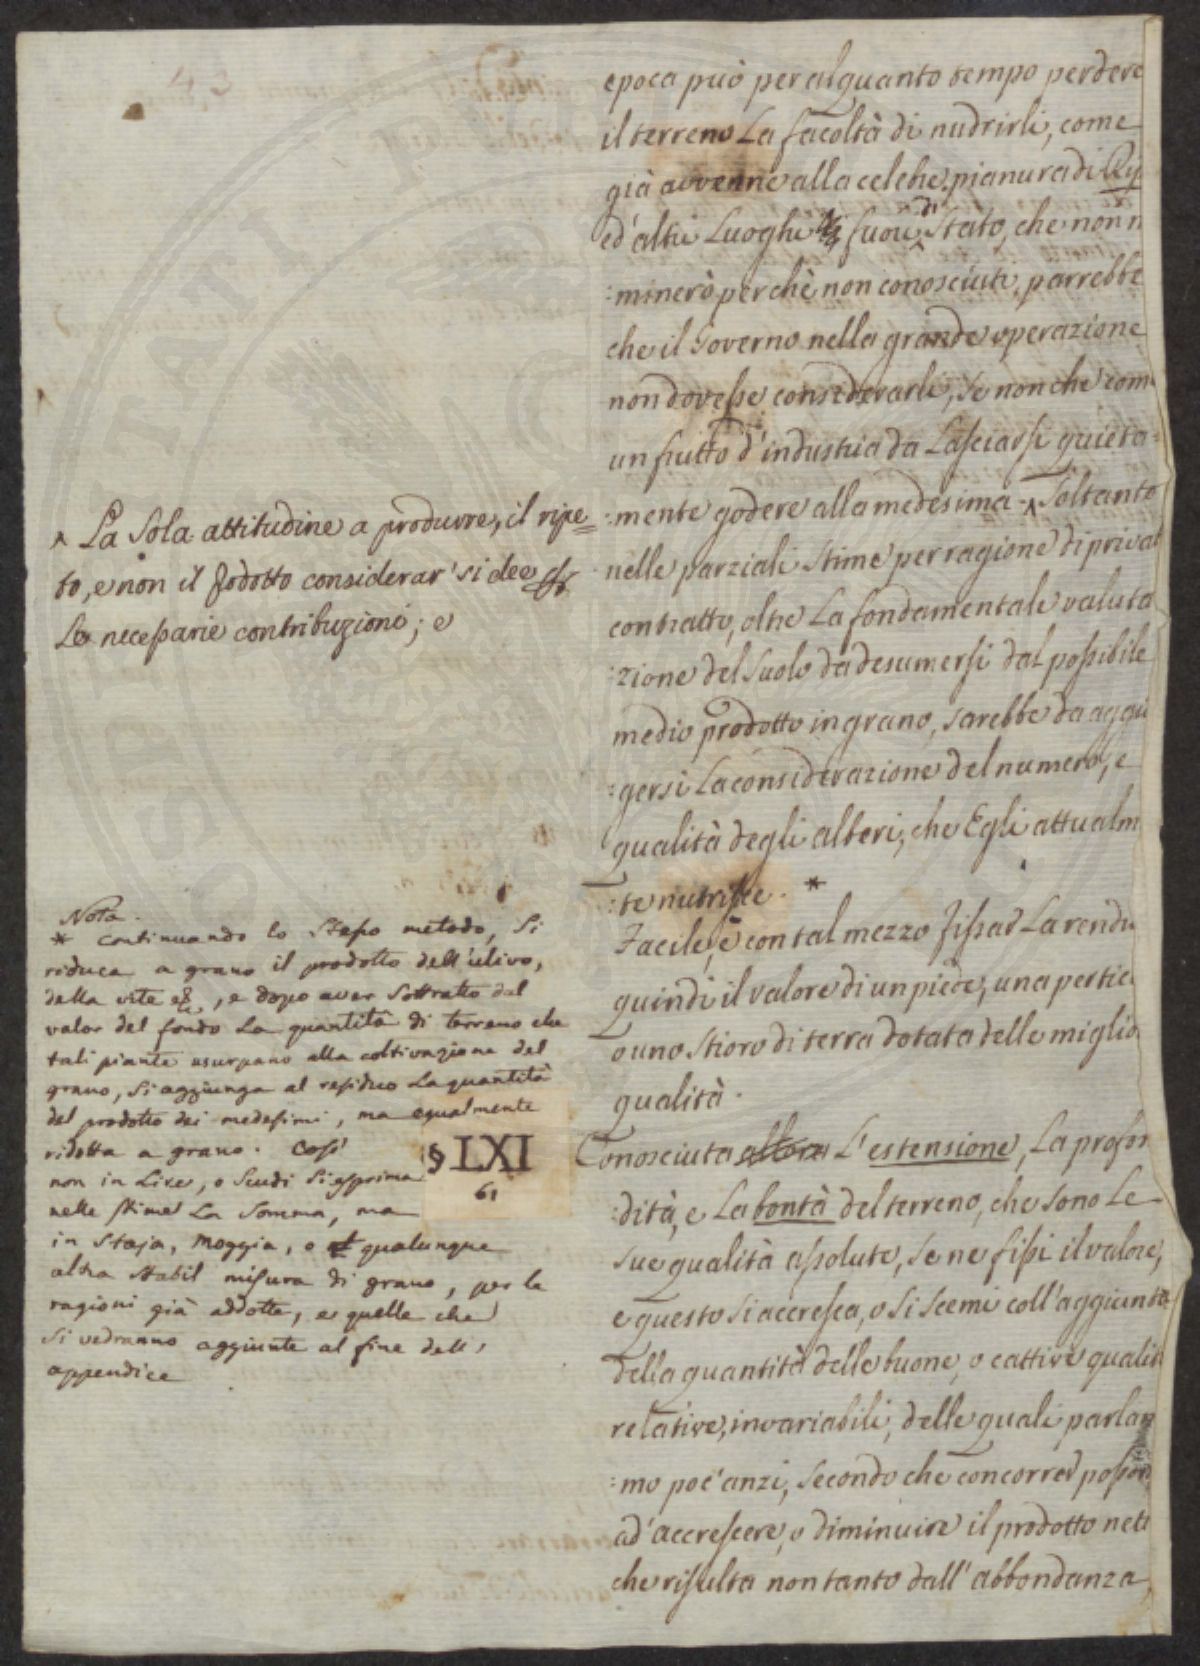 epoca può per alquanto tempo perdere
il terreno La facoltà di nudrirli, come
già avvenne alla celebre pianura di
ed'altri Luoghi fuori di Stato, che non n
:minerò perchè non conosciuti, parrebbe
che il Governo nella grande operazione
non dovesse considerarli, se non che com
un frutto d'industria da Lasciarsi quieta=
:mente godere alla medesima - ^ Soltanto
nelle parziali Stime per ragione di privat
contratto, oltre La fondamentale valuta
:zione del Suolo da desumersi dal possibile
medio prodotto in grano, sarebbe da aggiu
:gersi La considerazione del numero, e
qualità degli alberi, che Egli attualm
:te nutrisce. *
Facile, è con tal mezzo fissar La rendi
quindi il valore di un piede, una pertic
o uno Stioro di terra dotata delle miglio
qualità.
Conosciuta allora L'estensione, La profon
:dità, e La bontà del terreno, che sono Le
sue qualità assolute, se ne fissi il valore,
e questo si accresca, o si scemi coll'aggiunta
della quantità delle buone, o cattive qualit
relative, invariabili, delle quali parla
:mo poc'anzi, secondo che concorrer posson
ad'accrescere, o diminuire il prodotto nett
che risulta non tanto dall'abbondanza,
^ La Sola attitudine a produrre, il ripe=
to, e non il Prodotto considerar'si dee
Le necessarie contribuzioni; e
Nota.
* continuando lo Stesso metodo, Si
riduca a grano il prodotto dell'ulivo,
della vite &c, e dopo aver Sottratto dal
valor del fondo La quantità di terreno che
tali piante usurpano alla coltivazione del
grano, Si aggiunga al residuo La quantità
del prodotto dei medesimi, ma egualmente
ridotta a grano. Così
non in Lire, o Scudi Si esprima
nelle Stime La Somma, ma
in Staja, Moggia, o qualunque
altra Stabil misura di grano, per le
ragioni già addotte, e quelle che
Si vedranno aggiunte al fine dell'
appendice
§ LXI
61